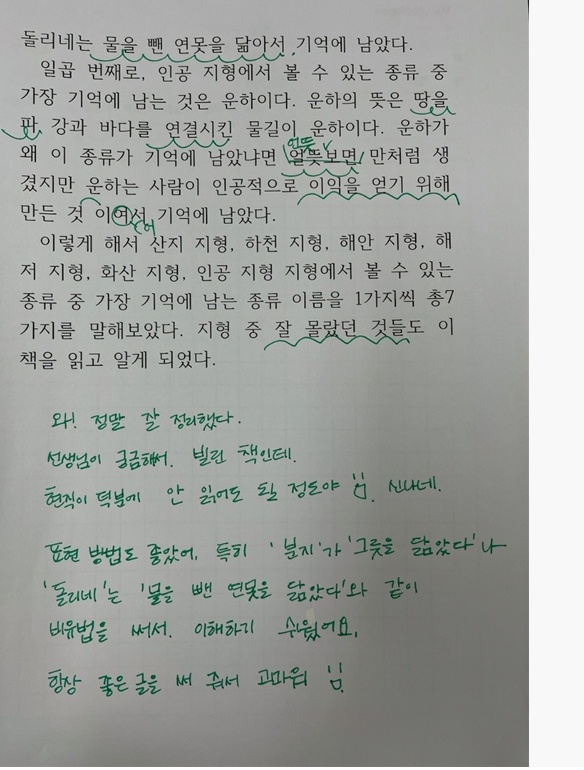 돌리네는 물을 뺀 연못을 닮아서 기억에 남았다.
일곱 번째로, 인공 지형에서 볼 수 있는 종류 중
가장 기억에 남는 것은 운하이다. 운하의 뜻은 땅을
파 강과 바다를 연결시킨 물길이 운하이다. 운하가
언뜻
왜 이 종류가 기억에 남았냐면 얼뜻보면 만처럼 생
겼지만 운하는 사람이 인공적으로 이익을 얻기 위해
만든 것 이여서 기억에 남았다.
어
이렇게 해서 산지 지형, 하천 지형, 해안 지형, 해
저 지형, 화산 지형, 인공 지형 지형에서 볼 수 있는
종류 중 가장 기억에 남는 종류 이름을 1가지씩 총7
가지를 말해보았다. 지형 중 잘 몰랐던 것들도 이
책을 읽고 알게 되었다.
와! 정말 잘 정리했다.
선생님이 궁금해서. 빌린 책인데.
현직이 덕분에 안 읽어도 될 정도야 신나네.
표현 방법도 좋았어. 특히 '분지'가 '그릇을 닮았다'나
'돌리네'는 '물을 뺀 연못을 닮았다'와 같이
비유법을 써서. 이해하기 쉬웠어요.
항상 좋은 글을 써 줘서 고마워